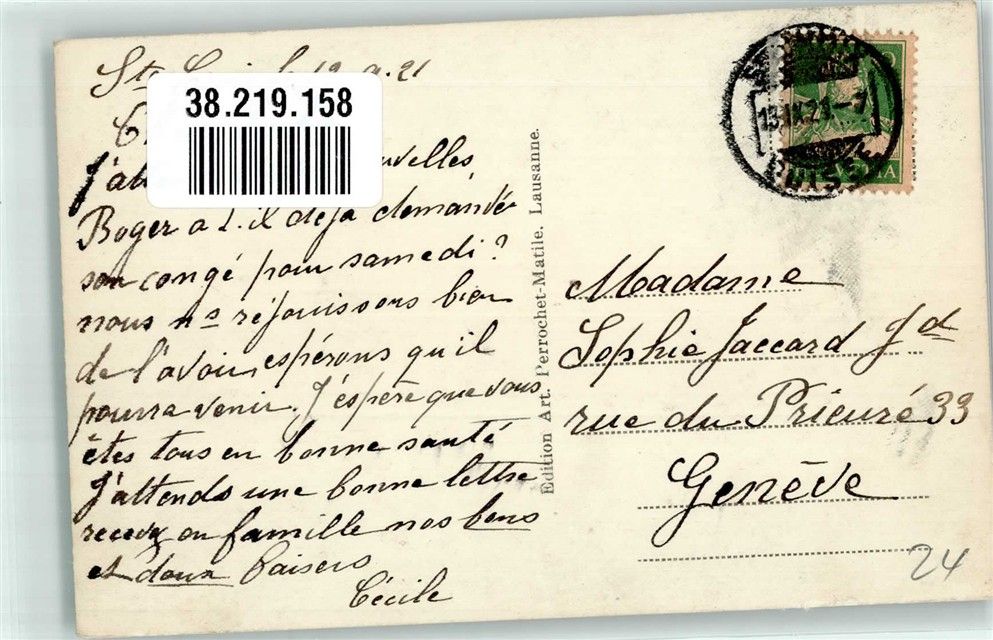 Ste 12.9.21
38.219.158
J'at uvelles,
Roger a t.il déja demandé
son congé pour samedi?
nous ns réjouissons bien
de l'avoir, espérons qu'il
pourra venir. J'éspère que vous
êtes tous en bonne santé
J'attends une bonne lettre
recevez en famille nos bons
et doux baisers
Cécile
Edition Art. Perrochet-Matile. Lausanne.
13.IX.21-7
SUISSE
Madame
Sophie Jaccard Jd
rue du Prieuré 33
Genève
24